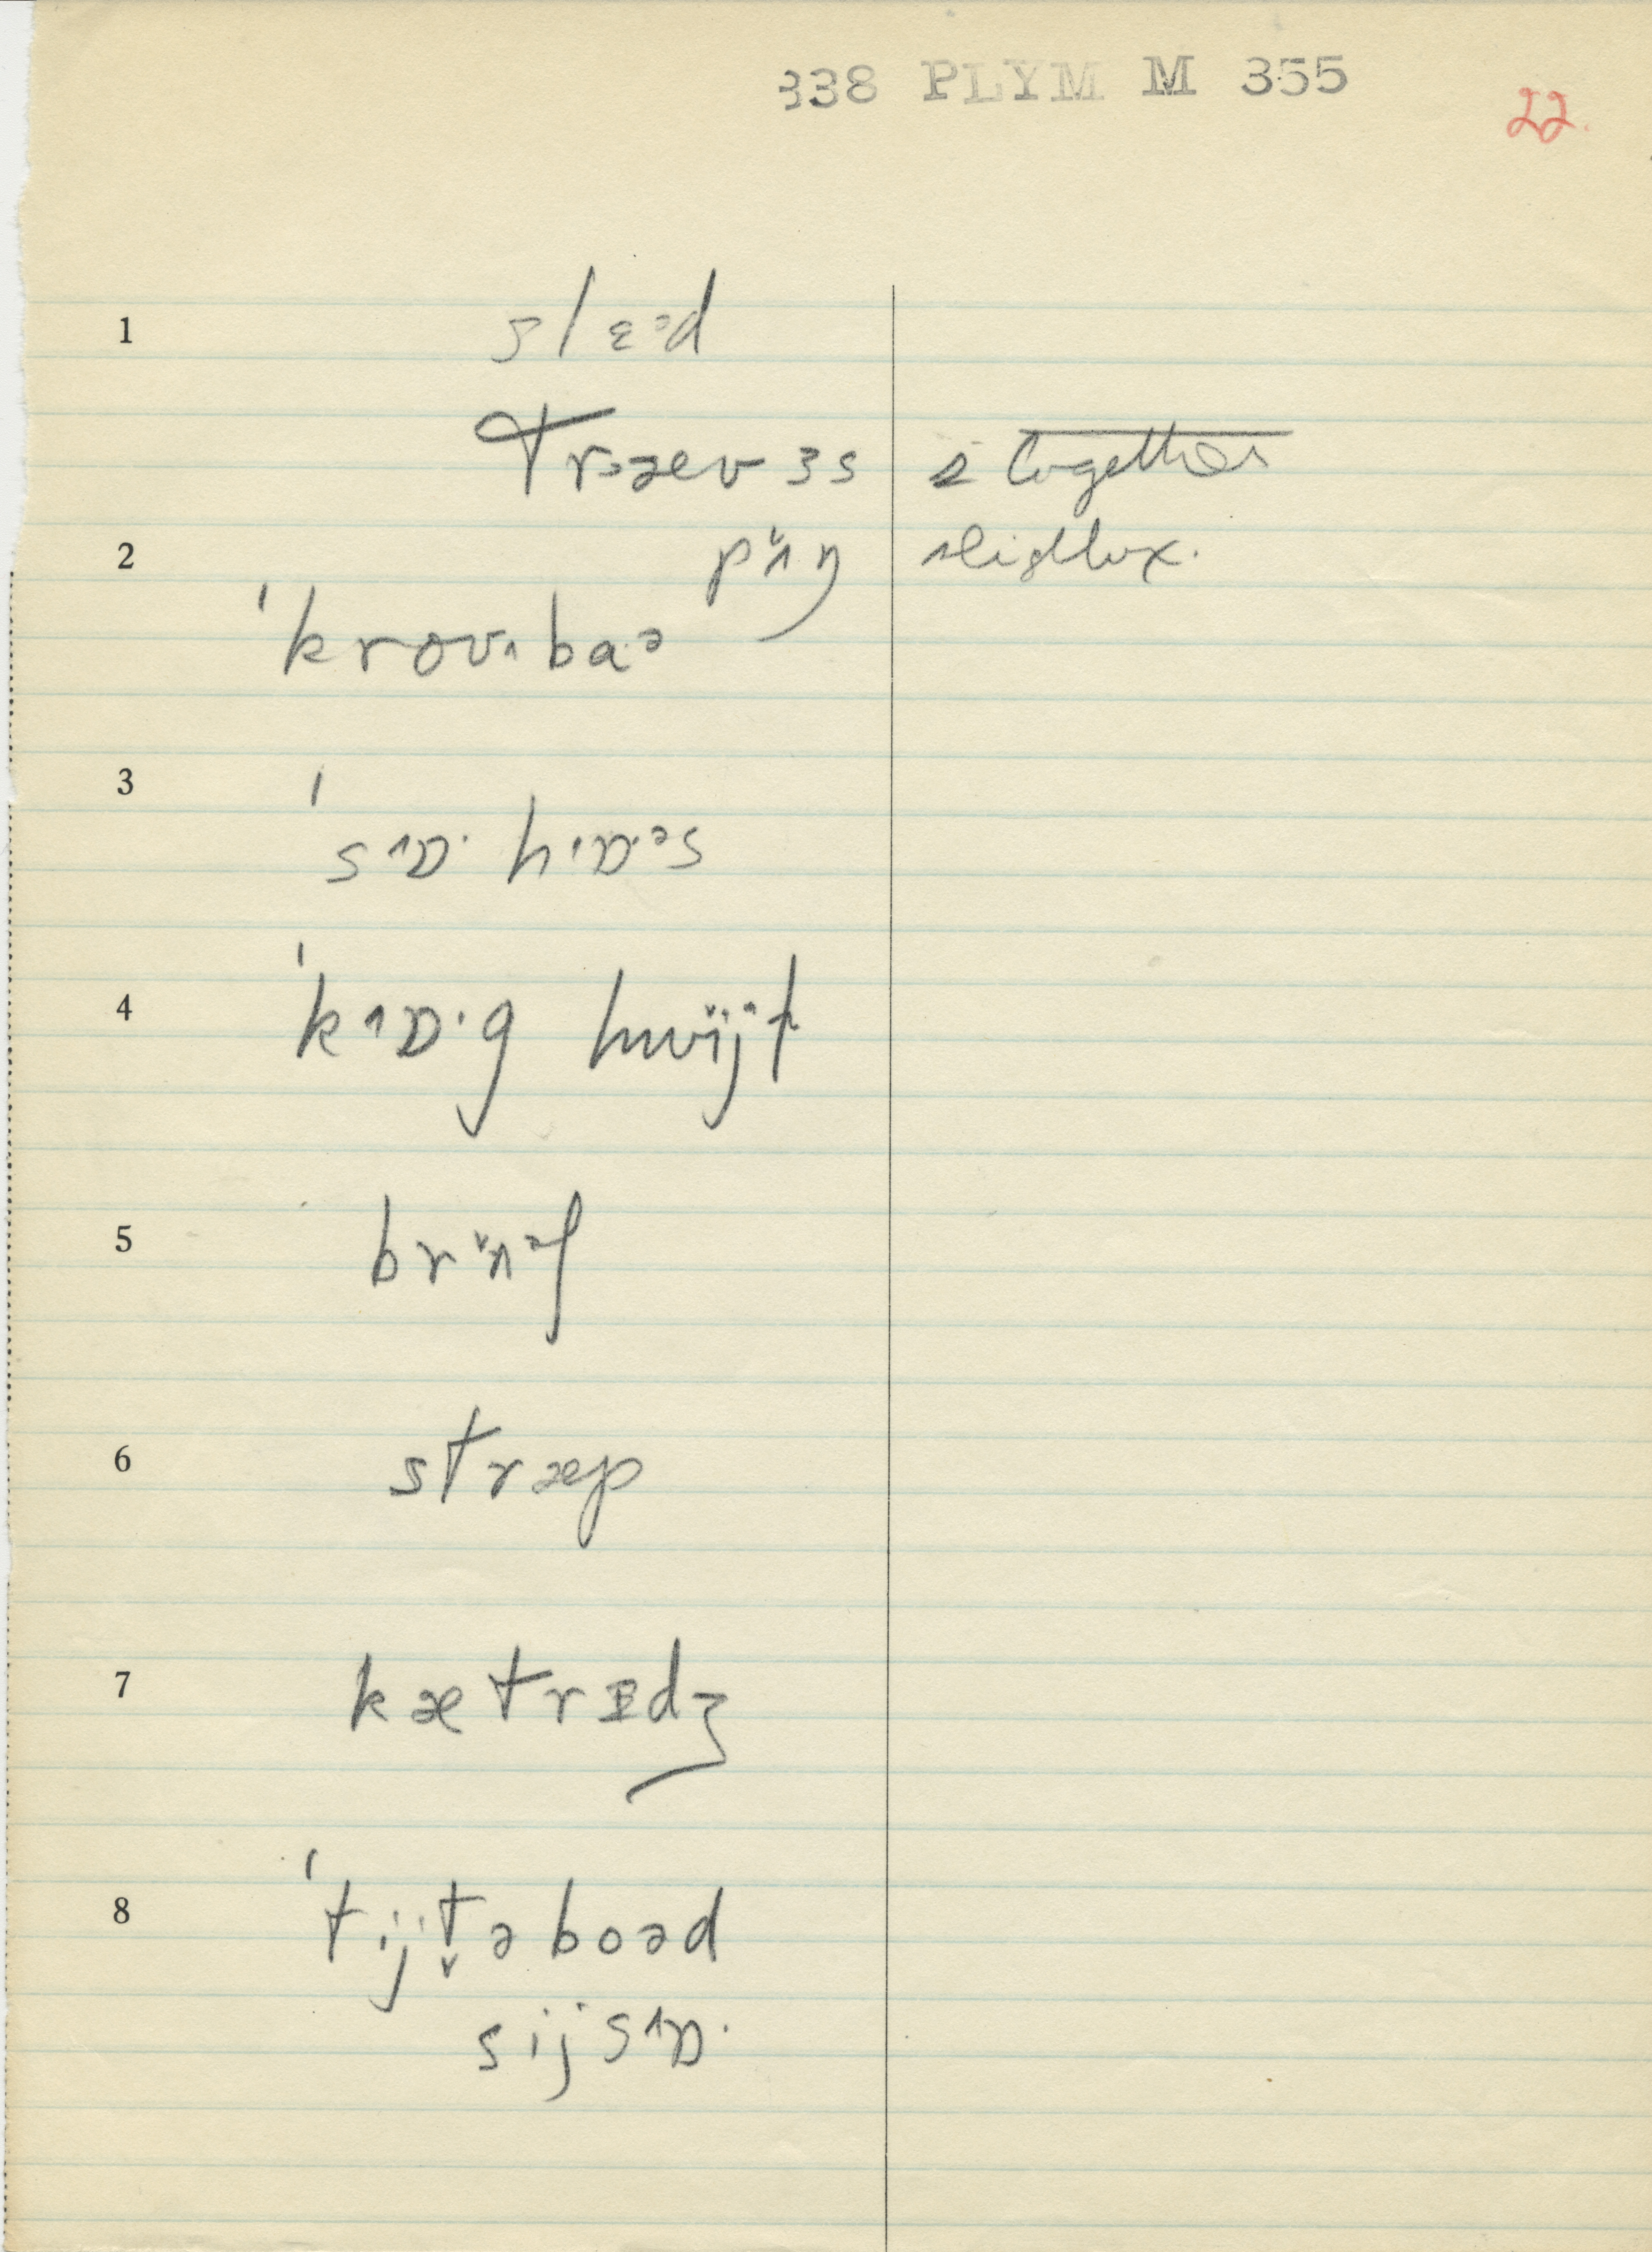 338 PLYM M 355
22.
1 slɛᵊd
træevɜs 2 together
2 pɪ̈ŋ
ˈkrovˈbaᵊ
3 ˈsɒ· hɒ·ᵊs
4 ˈkɒ·g hwïjt
5 brɪ̈ᵊf
6 stræp
7 kætrɪdʒ
8 ˈtijt̬əboəd
sijsɒ·